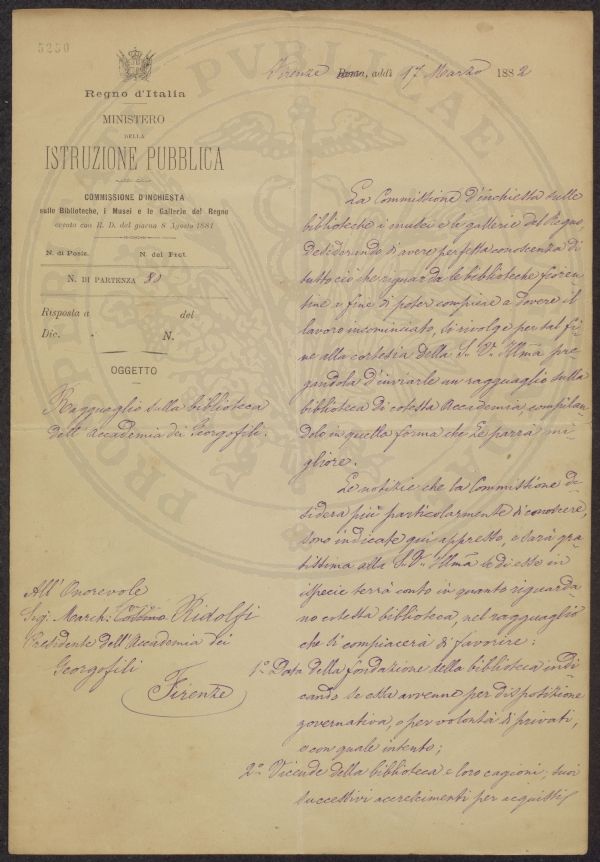 5250
Regno d'Italia
MINISTERO
DELLA
ISTRUZIONE PUBBLICA
COMMISSIONE D'INCHIESTA
sulle Biblioteche, i Musei e le Gallerie del Regno
creata con R. D. del giorno 8 Agosto 1881
N. di Posiz. N. del Prot.
N. DI PARTENZA 80
Risposta a del
Div. N.
OGGETTO
Ragguaglio sulla biblioteca
dell'Accademia dei Georgofili.
All'Onorevole
Sig: March: Ridolfi
Presidente dell'Accademia dei
Georgofili
Firenze
Firenze Roma, addì 17 Marzo 1882
La Commissione d'inchiesta sulle
biblioteche i musei e le gallerie del Regno,
desiderando di avere perfetta conoscenza di
tutto ciò che riguarda le biblioteche fioren
tine a fine di poter compiere a dovere il
lavoro incominciato, si rivolge per tal fi
ne alla cortesia della S. V. Illma pre
gandola d'inviarle un ragguaglio sulla
biblioteca di cotesta Accademia compilan
dolo in quella forma che Le parrà mi
gliore.
Le notizie che la Commissione de
sidera più particolarmente di conoscere,
sono indicate qui appresso, e sarà gra
tissima alla S. V. Illma se di esse in
ispecie terrà conto in quanto riguarda
no cotesta biblioteca, nel ragguaglio
che si compiacerà di favorire:
1º. Data della fondazione della biblioteca indi
cando se essa avvenne per disposizione
governativa, o per volontà di privati,
e con quale intento;
2º. Vicende della biblioteca e loro cagioni; suoi
successivi accrescimenti per acquisti,